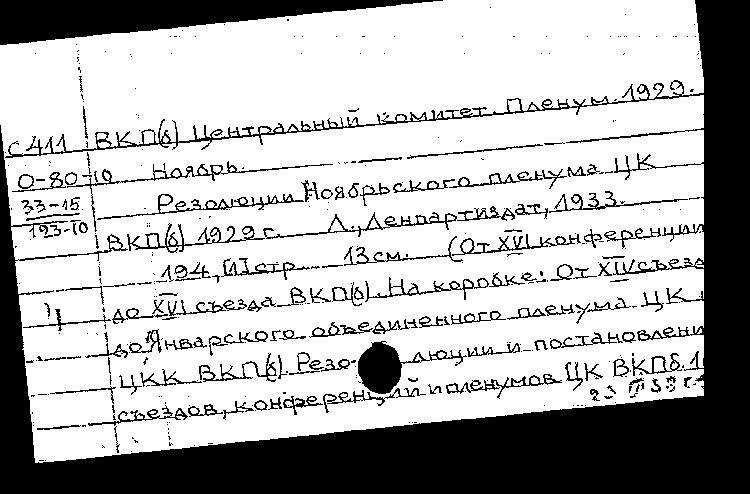 С411 ВКП(б) Центральный комитет. Пленум. 1929.
0-80-10 Ноябрь.
33-15 Резолюции Ноябрьского пленума ЦК
193-10 ВКП(б) 1929 г. Л., Ленпартиздат, 1933.
194, [1] стр 13 см. (От XVI конференции
до XVI съезда ВКП(б). На коробке: От XIV съезд
до Январского объединенного пленума ЦК
ЦКК ВКП(б). Резолюции и постановлени
съездов, конференций и пленумов ЦК ВКПб.